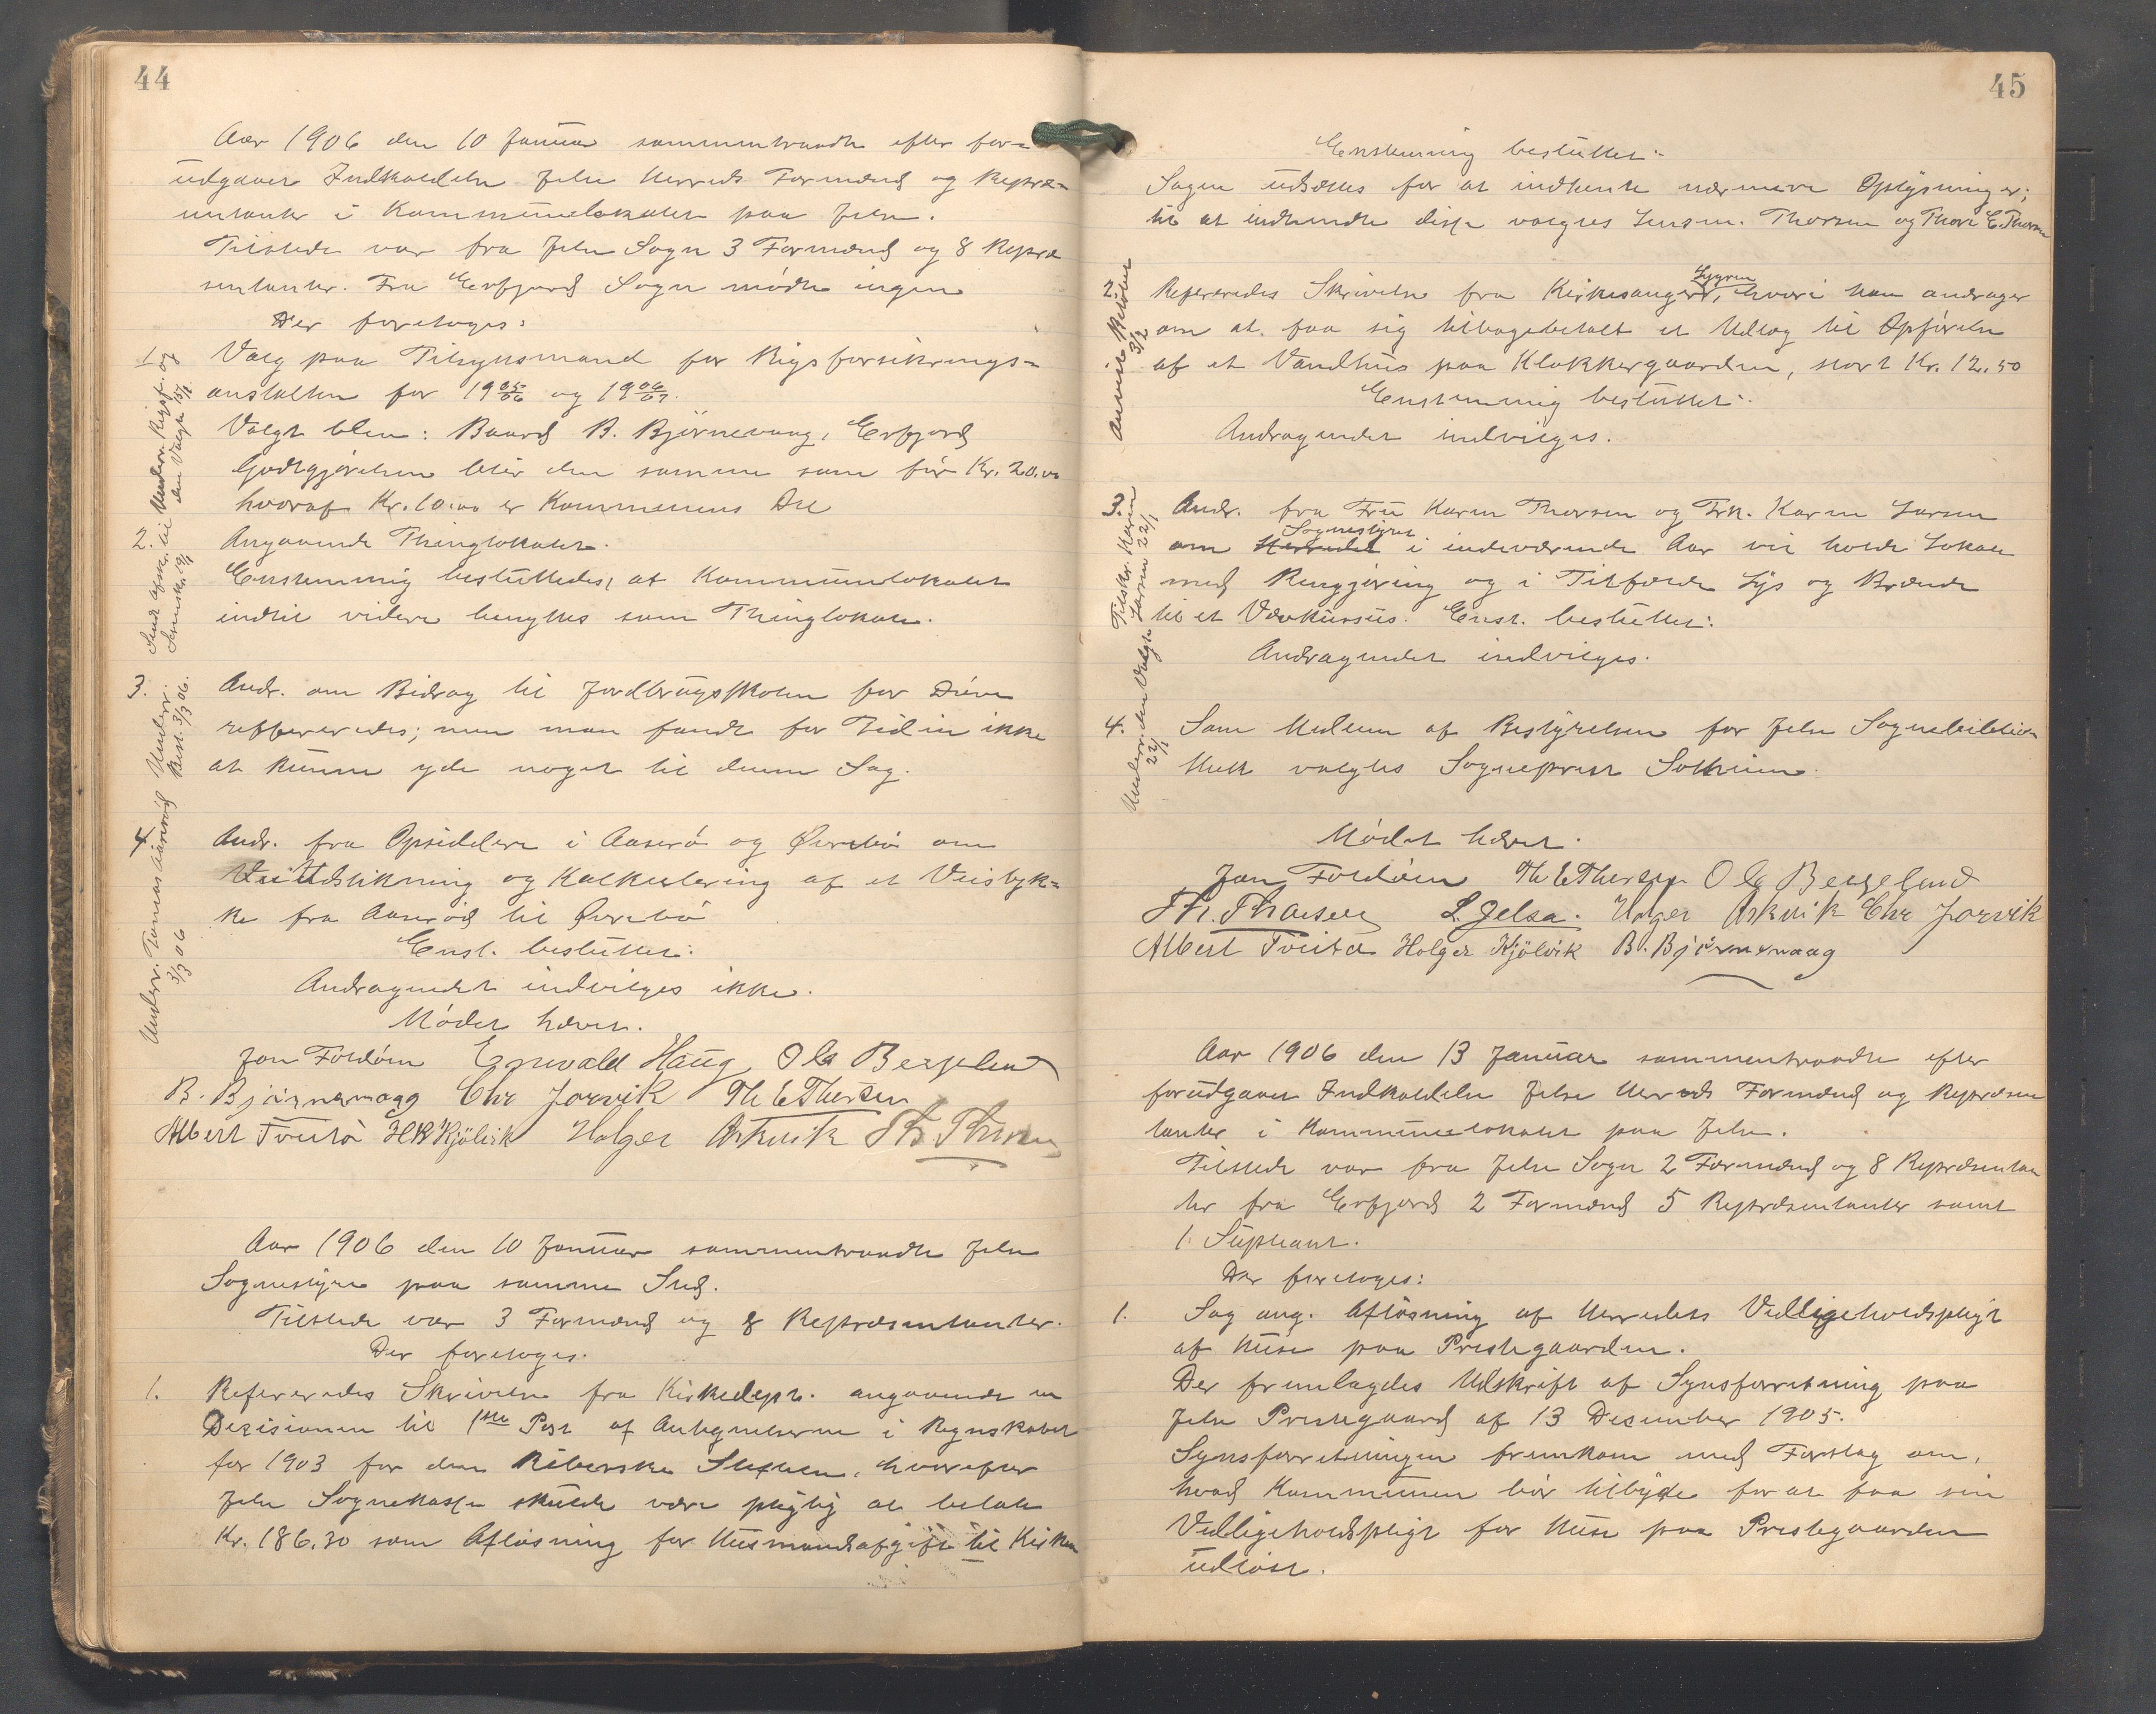 44
Aar 1906 den 10 Januar sammentraadte efter for-
udgaaen Indkaldelse Jelse Herreds Formænd og Repræ-
sentanter i Kommunelokalet paa Jelse.
Tilstede var fra Jelse Sogn 3 Formænd og 8 Repræ
sentanter. Fra Erfjord Sogn mødte ingen
Der foretoges:
1. Valg paa Tilsynsmand for Rigsforsikrings-
anstalten for 1905/06 og 1906/07.
Valgt blev: Baard B. Björnevaag, Erfjord
Godtgjørelsen blir den samme som før Kr. 20.00
hvoraf Kr. 10.00 er Kommunens Del
2. Angaaende Thinglokalet.
Enstemmig besluttedes, at Kommunelokalet
indtil videre benyttes som Thinglokale.
3. Andr. om Bidrag til Jordbrugsskolen for Døve
reffereredes; men man fandt for Tiden ikke
at kunne yde noget til denne Sag.
4. Andr. fra Opsiddere i Aaserø og Øvrebø om
Udstikning og Kalkulering af et Veistyk-
ke fra Aaserød til Øvrebø
Enst. besluttet:
Andragendet indvilges ikke.
Mødet hævet.
Jon Foldöen Enevald Haug Ola Bergeland
B. Björnevaag Chr Jorvik Th E Thorsen
Albert Tveita H K Kjölvik Holger Askvik Th. Thorsen
Aar 1906 den 10 Januar sammentraadte Jelse
Sognestyre paa samme Sted.
Tilstede var 3 Formænd og 8 Repræsentanter.
Der foretoges.
1. Refereredes Skrivelse fra Kirkedept. angaaende en
Decisionen til 1ste Post af Antegnelserne i Regnskabet
for 1903 for den Riberske Stiftelse, hvorefter
Jelse Sognekasse skulde være pligtig at betale
Kr. 186.30 som Afløsning for Husmandsafgift til Kirken
Underr. Rigsf. og
den Valgte 15/1
Sendt afskr. til
Lensm. 19/1
Underr.
Best. 3/3 06.
Underr. Tomas Aaserød
3/3 06
45
Enstemmig besluttet:
Sagen udsættes for at indhente nærmere Oplysninger;
til at indhente disse valgtes Lensm. Thorsen og Thore E. Thorsen
2. Refereredes Skrivelse fra Kirkesanger, hvori han andrager
om at faa sig tilbagebetalt et Udlæg til Opførelse
af et Vandhus paa Klokkergaarden, stort Kr. 12.50
Enstemmig besluttet:
Andragendet indvilges.
3. Andr. fra Fru Karen Thorsen og Frk. Karen Larsen
Sognestyret
om Herredet i indeværende Aar vil holde Lokale
med Rengjøring og i Tilfælde Lys og Brænde
til et Vævkursus. Enst. besluttet:
Andragendet indvilges.
4. Som Medlem af Bestyrelsen for Jelse Sognebiblio-
thek valgtes Sogneprest Solheim.
Mødet hævet.
Jon Foldöen Th E Thorsen Ola Bergeland
Th. Thorsen L. Jelsa. Holger Askvik Chr Jorvik
Albert Tveita Holger Kjölvik B. Björnevaag
Aar 1906 den 13 Januar sammentraadte efter
forudgaaen Indkaldelse Jelse Herreds Formænd og Repræsen
tanter i Kommunelokalet paa Jelse.
Tilstede var fra Jelse Sogn 2 Formænd og 8 Repræsentan
ter fra Erfjord 2 Formænd 5 Repræsentanter samt
1 Supleant.
Der foretoges:
1. Sag ang. Afløsning af Herredets Vedligeholdspligt
af Huse paa Prestegaarden.
Der fremlagdes Udskrift af Synsforretning paa
Jelse Prestegaard af 13 December 1905.
Synsforretningen fremkom med Forslag om,
hvad Kommunen bör tilbyde for at faa sin
Vedligeholdspligt for Huse paa Prestegaarden
udløst.
3/2
Tilskr. Karen
Larsen 22/1
Underr. den Valgte
22/1